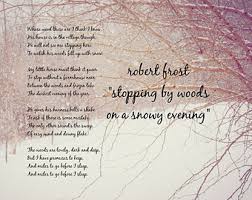 Whose woods these are I think I know
His house is in the village though;
He will not see me stopping here
To watch his woods fill up with snow

My little horse must think it queer
To stop without a farmhouse near
Between the woods and frozen lake
The darkest evening of the year

He gives his harness bells a shake
To ask if there is some mistake
The only other sound's the sweep
Of easy wind and downy flake

The woods are lovely, dark and deep,
But I have promises to keep,
And miles to go before I sleep,
And miles to go before I sleep.

robert frost
"stopping by woods
on a snowy evening"